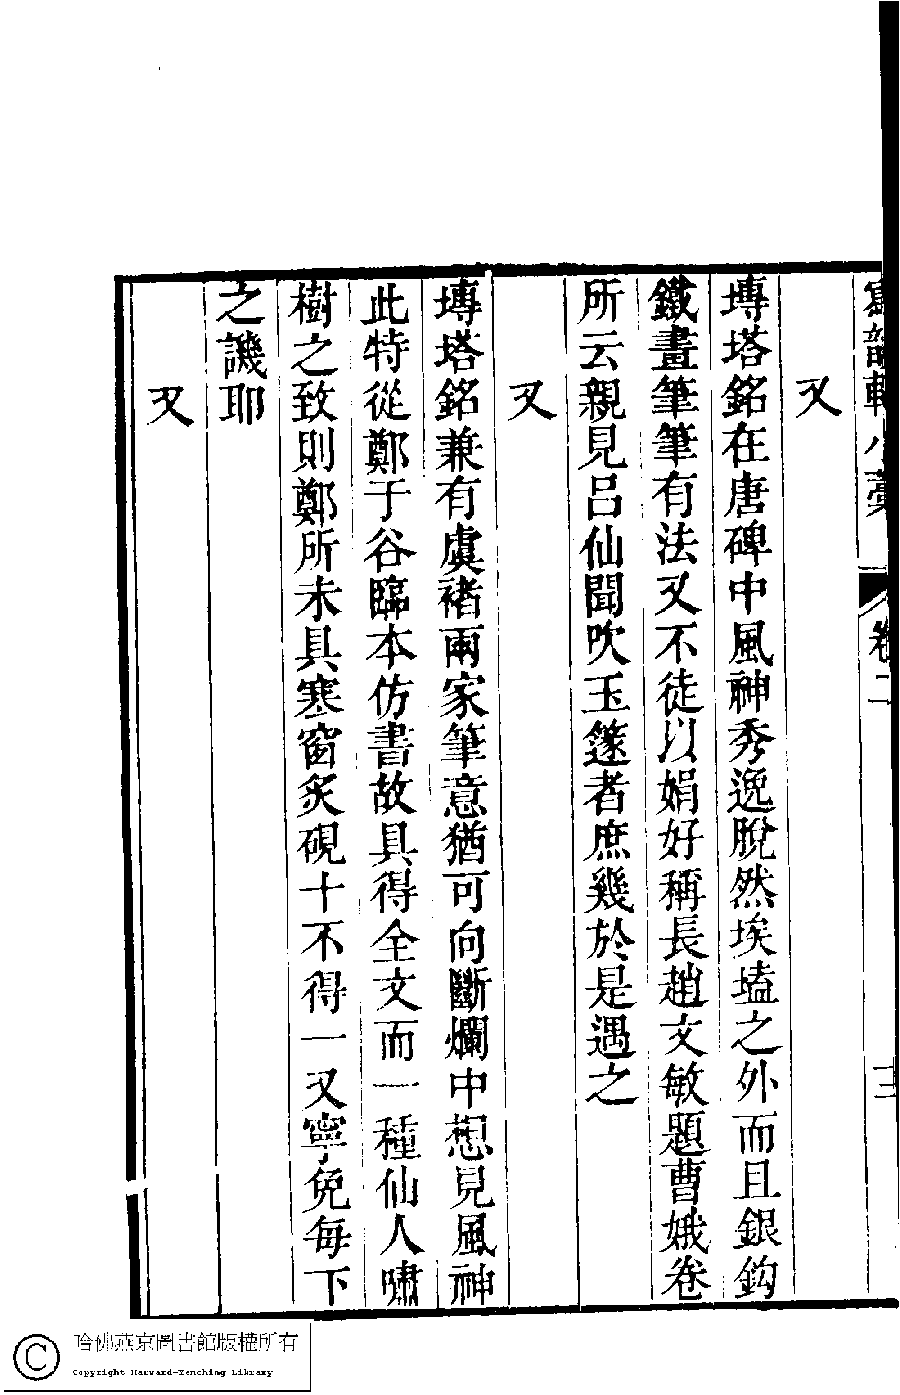 寫韻軒小藁　卷二
又
塼塔銘在唐碑中風神秀逸脫然埃壒之外而且銀鈎
鐵畫筆筆有法又不徒以娟好稱長趙文敏題曹娥卷
所云親見呂仙聞吹玉篴者庶幾於是遇之
又
塼塔銘兼有虞褚兩家筆意猶可向斷爛中想見風神
此特從鄭于谷臨本仿書故具得全文而一種仙人嘯
樹之致則鄭所未具寒窗炙硯十不得一又寧免每下
之譏耶
又
哈佛燕京圖書館版權所有
Copyright Harvard-Yenching Library